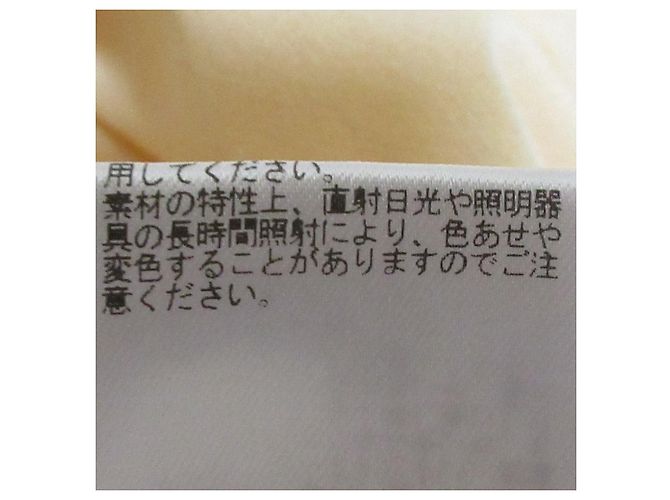 用してください。
素材の特性上、直射日光や照明器
具の長時間照射により、色あせや
変色することがありますのでご注
意ください。